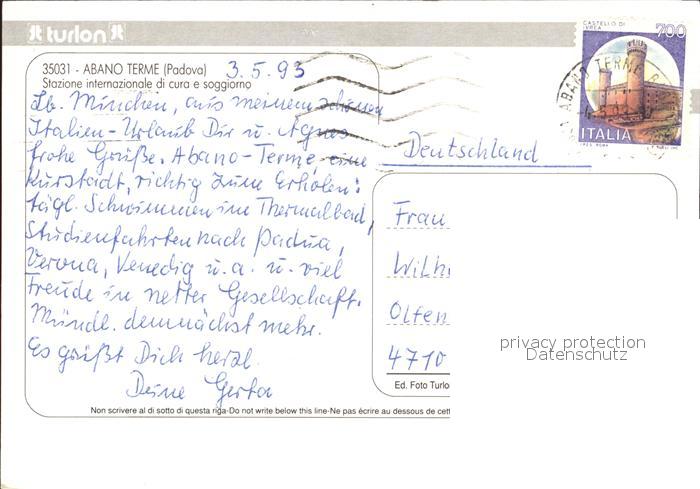 turlon
CASTELLO DI
IVREA
700
35031 - ABANO TERME (Padova) 3.5.93
Stazione internazionale di cura e soggiorno
ABANO TERME
ITALIA
Lb. München, aus meinem schönen
Italien-Urlaub Dir u. Agnes
frohe Grüße. Abano-Terme, eine
Kurstadt, richtig zum Erholen:
tägl. Schwimmen im Thermalbad,
Studienfahrten nach Padua,
Verona, Venedig u. a. u. viel
Freude in netter Gesellschaft.
Mündl. demnächst mehr.
Es grüßt Dich herzl.
Deine Gerta
Deutschland
Frau
Wilh
Olfen
4710
privacy protection
Datenschutz
Ed. Foto Turlo
Non scrivere al di sotto di questa riga-Do not write below this line-Ne pas écrire au dessous de cett